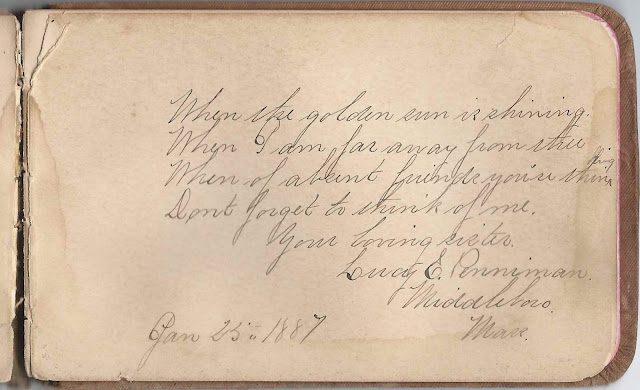 When the golden sun is shining.
When I am far away from thee
When of absent friends you're thinking
Dont forget to think of me.
Your loving sister.
Lucy E. Penniman.
Middleboro,
Mass.
Jan 25" 1887